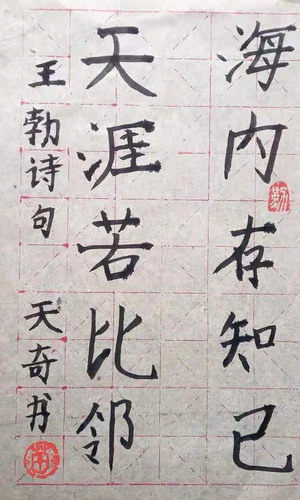 海内存知己
天涯若比邻
王勃诗句 天奇书